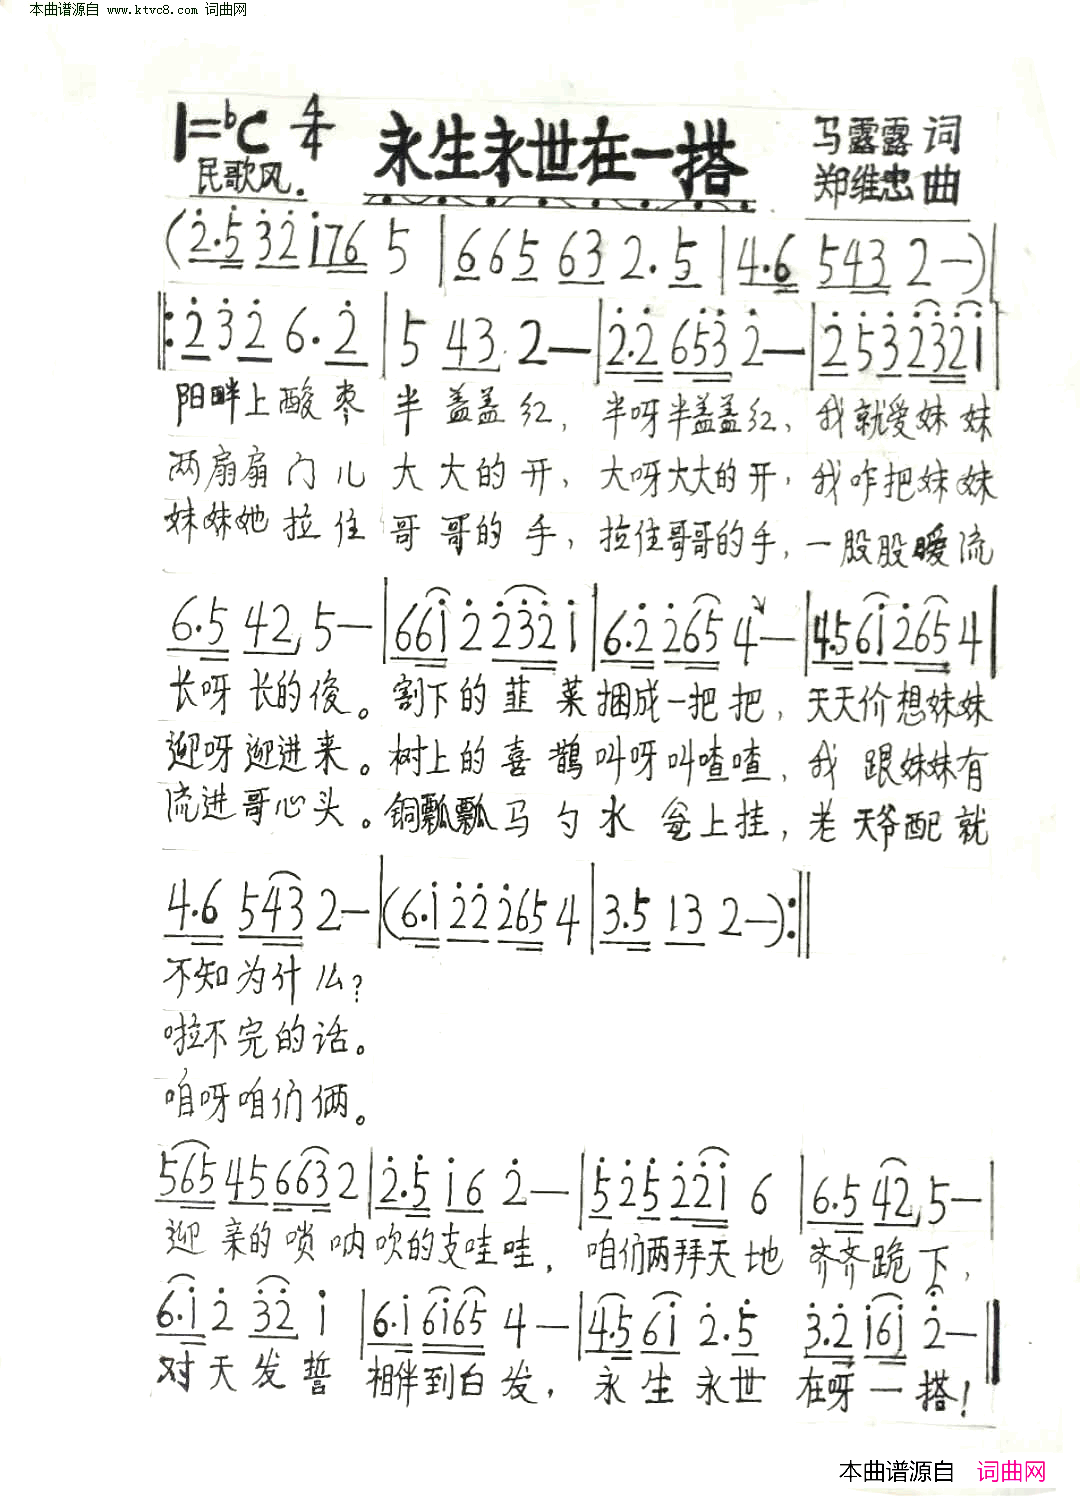 本曲谱源自 www.ktvc8.com 词曲网
1=♭C 4/4 永生永世在一搭 马露露 词
民歌风. 郑维忠 曲
(2̇.5̇ 3̇2̇ 1̇76 5 | 665 63 2.5 | 4.6 543 2—)|
‖:2̇3̇2̇ 6.2̇ | 5 43 2— | 2̇.2̇ 65̇3̇ 2̇— | 2̇5̇3̇2̇3̇2̇1̇ |
阳畔上酸枣 半盖盖红, 半呀半盖盖红, 我就爱妹妹
两扇扇门儿 大大的开, 大呀大大的开, 我咋把妹妹
妹妹她拉住 哥哥的手, 拉住哥哥的手, 一股股暖流
6.5 42 5— | 661̇ 2̇ 2̇3̇2̇ 1̇ | 6.2̇ 2̇65 4— | 4.5 61̇ 2̇65 4 |
长呀长的俊。割下的韮菜捆成一把把, 天天价想妹妹
迎呀迎进来。树上的喜鹊叫呀叫喳喳, 我跟妹妹有
流进哥心头。铜瓢瓢马勺水瓮上挂, 老天爷配就
4.6 543 2— | (6.1̇ 2̇2̇ 2̇65 4 | 3.5 13 2—):‖
不知为什么?
啦不完的话。
咱呀咱们俩。
565 45 663 2 | 2̇.5̇ 1̇6 2̇— | 5̇2̇5̇ 2̇2̇1̇ 6 | 6.5 42 5— |
迎亲的唢呐吹的支哇哇, 咱们两拜天地 齐齐跪下,
6.1̇ 2̇ 3̇2̇ 1̇ | 6.1̇ 61̇65 4— | 4.5 61̇ 2̇.5̇ 3̇.2̇ 1̇61̇ 2̇— ‖
对天发誓 相伴到白发, 永生永世 在呀一搭!
本曲谱源自 词曲网